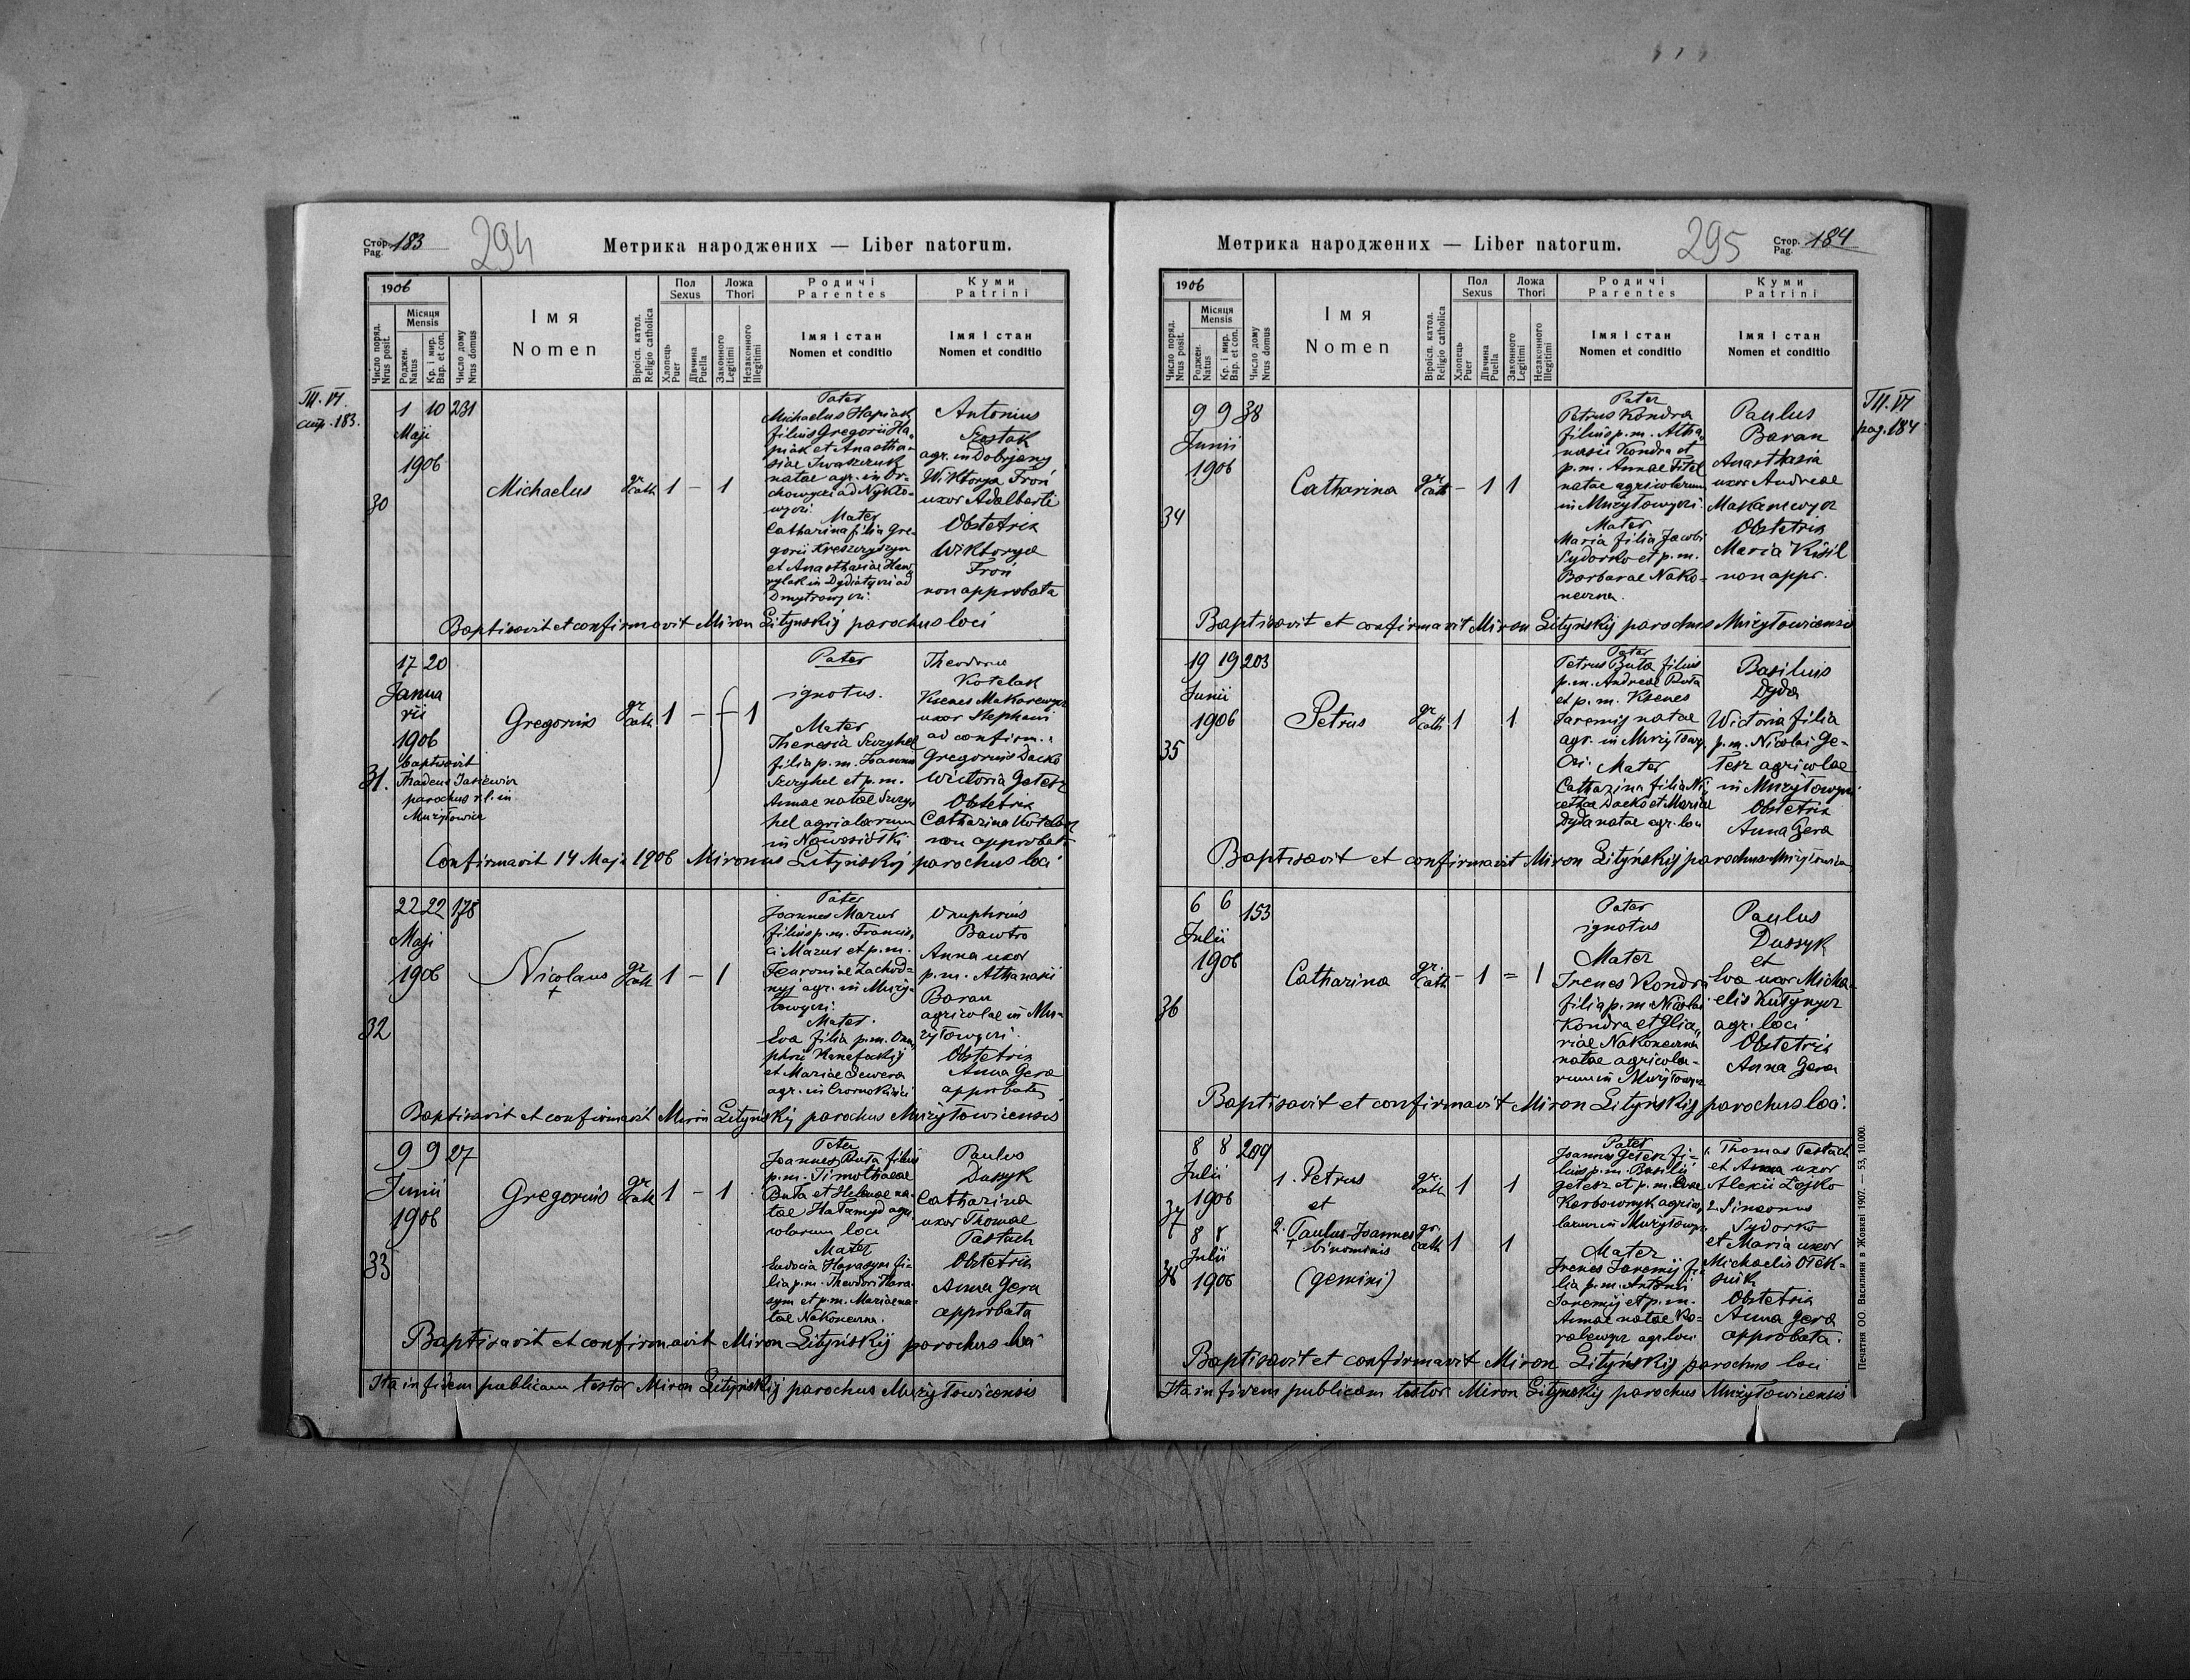 Стор.
Pag. 183
294
Метрика народжених — Liber natorum.
1906
Число поряд.
Nrus posit.
Місяця
Mensis
Роджен.
Natus
Кр. і мир.
Bap. et con.
Число дому
Nrus domus
Імя
Nomen
Віроісп. катол.
Religio catholica
Пол
Sexus
Хлопець
Puer
Дівчина
Puella
Ложа
Thori
Законного
Legitimi
Незаконного
Illegitimi
Родичі
Parentes
Імя і стан
Nomen et conditio
Куми
Patrini
Імя і стан
Nomen et conditio
30
1 10 231
Maji
1906
Michaelus
gr. cath. 1 – 1
Pater
Michaelus Hapiak
filius Gregorii Ha„
piak et Anastha-
siae Iwaszczuk
natae agr. in Or-
chowyci ad Nykło-
wyci.
Mater
Catharina filia Gre-
gorii Kreszczyszyn
et Anasthasiae Haw„
rylak in Dydiatyczi ad
Dmytrowyci.
Antonius
Szostak
agr. in Dobrjany
Wiktorya Froń
uxor Adalberti
Obstetrix
Wiktorya
Froń
non approbata
Baptisavit et confirmavit Miron Lityńskij parochus loci
31.
17 20
Janua
rii
1906
baptisavit
Thadeus Jasiewicz
parochus r. l. in
Mużyłowice
Gregorius
gr. cath. 1 – – 1
Pater
ignotus.
Mater
Theresia Szczyhel
filia p.m. Joannis
Szczyhel et p.m.
Annae natae Szczy
hel agricolarum
in Nowosiółki
Theodorus
Kotelak
Ksenes Makarewycz
uxor Stephani
ad confirm.:
Gregorius Dacko
Wictoria Getesz
Obstetrix
Catharina Kotelak
non approbata
Confirmavit 14 Maja 1906 Mironus Lityńskij parochus loci
32
22 22 178
Maji
1906
Nicolaus
gr. cath. 1 – 1
Pater
Joannes Mazur
filius p.m. Francis„
ci Mazur et p.m.
Fewroniae Zachod=
nyj agr. in Muży-
łowyci.
Mater
Eva filia p.m. Onu„
phrii Hanafockij
et Mariae Sewera
agr. in Czornokińci
Onuphrius
Bawtro
Anna uxor
p.m. Athanasii
Baran
agricolae in Mu=
żyłowyci.
Obstetrix
Anna Gera
approbata
Baptisavit et confirmavit Miron Lityńskij parochus Mużyłowicensis
33
9 9 27
Junii
1906
Gregorius
gr. cath. 1 – 1
Pater
Joannes Buta filius
p.m. Timothaeae
Buta et Helenae na-
tae Hałamyd agri
colarum loci
Mater
Eudocia Harasym fi-
lia p.m. Theodori Hara-
sym et p.m. Mariae na-
tae Nakoneczna.
Paulus
Dussyk
Catharina
uxor Thomae
Pastuch
Obstetrix
Anna Gera
approbata
Baptisavit et confirmavit Miron Lityńskij parochus loci
Ita in fidem publicam testor Miron Lityńskij parochus Mużyłowicensis
Метрика народжених — Liber natorum.
295
Стор.
Pag. 184
1906
Число поряд.
Nrus posit.
Місяця
Mensis
Роджен.
Natus
Кр. і мир.
Bap. et con.
Число дому
Nrus domus
Імя
Nomen
Віроісп. катол.
Religio catholica
Пол
Sexus
Хлопець
Puer
Дівчина
Puella
Ложа
Thori
Законного
Legitimi
Незаконного
Illegitimi
Родичі
Parentes
Імя і стан
Nomen et conditio
Куми
Patrini
Імя і стан
Nomen et conditio
pag. 184
34
9 9 38
Junii
1906
Catharina
gr. cath – 1 1
Pater
Petrus Kondra
filius p.m. Atha„
nasii Kondra et
p.m. Annae Fitel
natae agricolarum
in Mużyłowyci.
Mater
Maria filia Jacobi
Sydorko et p.m.
Barbarae Nako-
neczna.
Paulus
Baran
Anasthasia
uxor Andreae
Makarewycz
Obstetrix
Maria Kisil
non appr.
Baptisavit et confirmavit Miron Lityńskij parochus Mużyłowicensis
35
19 19 203
Junii
1906
Petrus
gr. cath 1 1
Pater
Petrus Buta filius
p.m. Andreae Buta
et p.m. Ksenes
Jaremij natae
agr. in Mużyłowy
ci. Mater
Catharina filia Ni
cetae Dacko et Mariae
Dyda natae agr. loci
Basilius
Dyda
Wictoria filia
p.m. Nicolai Ge-
tesz agricolae
in Mużyłowyci
Obstetrix
Anna Gera
Baptisavit et confirmavit Miron Lityńskij parochus Mużyłowicen
36
6 6 153
Julii
1906
Catharina
gr. cath – 1 = 1
Pater
ignotus
Mater
Irenes Kondra
filia p.m. Nicolai
Kondra et Glia„
riae Nakoneczna
natae agricola-
rum in Mużyłowyci
Paulus
Dussyk
et
Eva uxor Micha-
elis Kutynycz
agr. loci
Obstetrix
Anna Gera
Baptisavit et confirmavit Miron Lityńskij parochus loci.
37
8 8 209
Julii
1906
1. Petrus
et
gr. cath 1 1
38
8 8
Julii
1906
2. Paulus-Joannes
binominis
(gemini)
gr. cath 1 1
Pater
Joannes Getesz fi-
lius p.m. Basilii
Getesz et p.m. Evae
Korbownyk agrico„
larum in Mużyłowyci
Mater
Irenes Jaremij fi-
lia p.m. Antonii
Jaremij et p.m.
Annae natae Ko-
walewycz agr. loci
1. Thomas Pastuch
et Anna uxor
Alexii Łojko
2. Simeonus
Sydorko
et Maria uxor
Michaelis Olek-
siuk
Obstetrix
Anna Gera
approbata.
Baptisavit et confirmavit Miron Lityńskij parochus loci
Ita in fidem publicam testor Miron Lityńskij parochus Mużyłowicensis
Печатня ОО. Василиян в Жовкві 1907. — 53, 10.000.